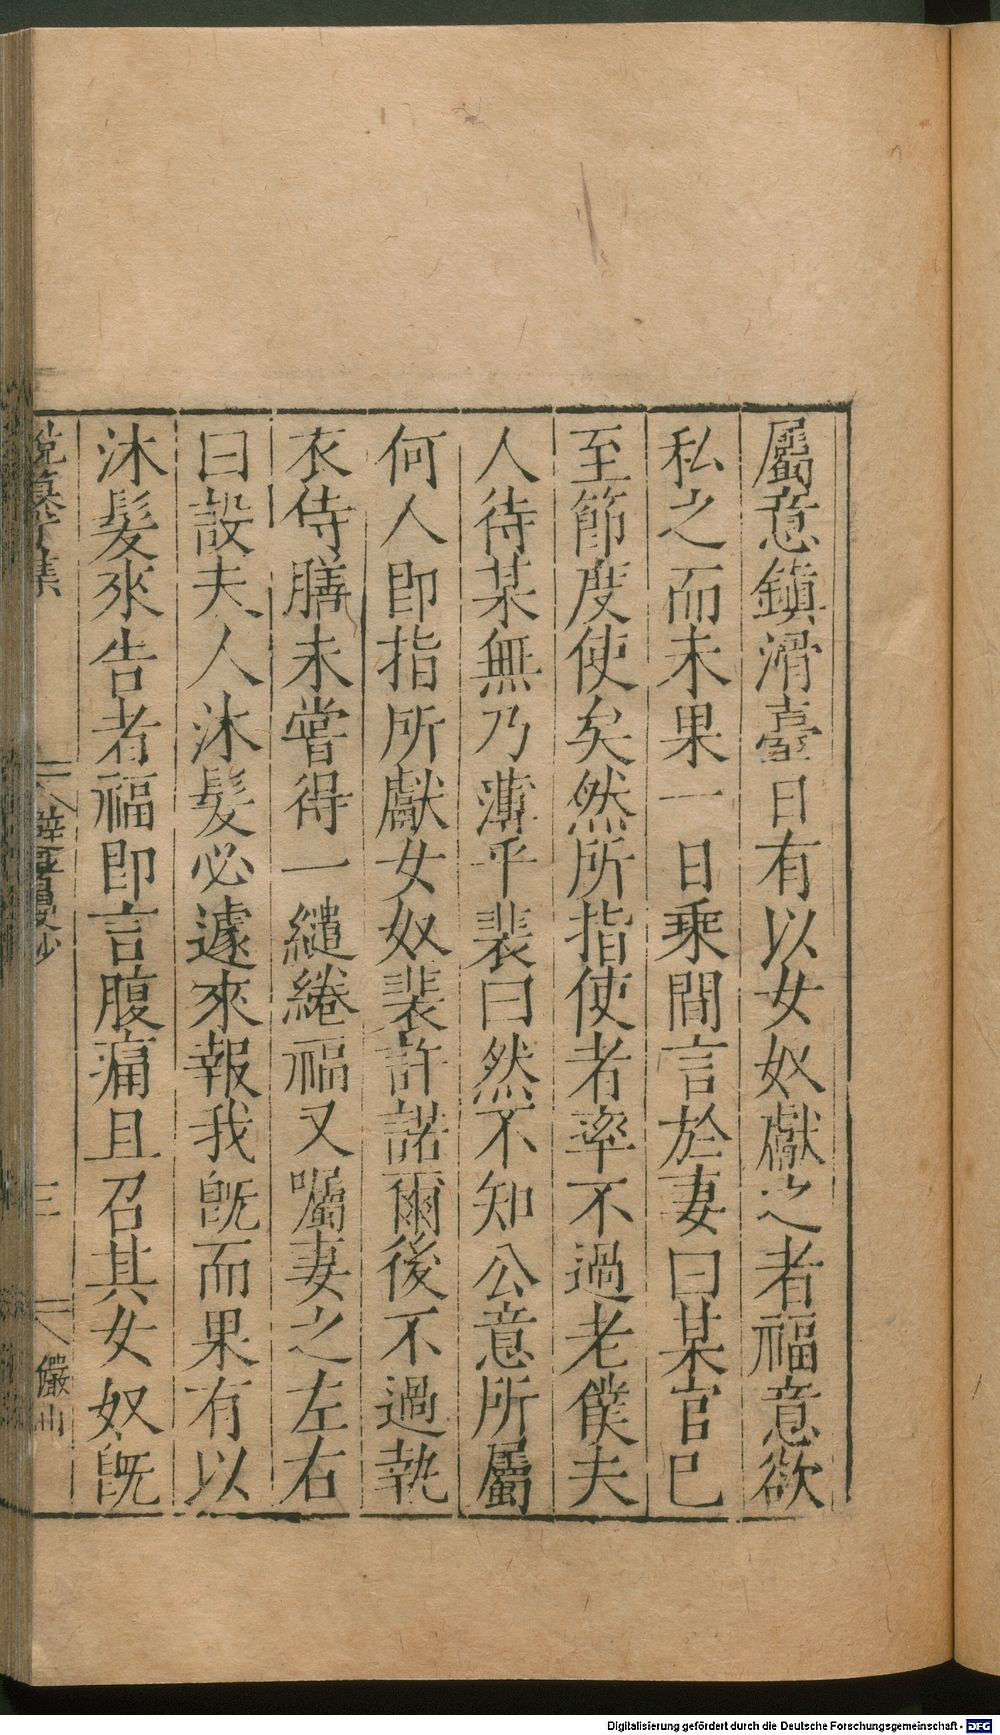 屬意鎮滑臺日有以女奴獻之者福意欲
私之而未果一日乘間言於妻曰某官已
至節度使矣然所指使者率不過老僕夫
人待某無乃薄乎裴曰然不知公意所屬
何人即指所獻女奴裴許諾爾後不過執
衣侍膳未嘗得一繾綣福又囑妻之左右
曰設夫人沐髮必遽來報我旣而果有以
沐髮來告者福即言腹痛且召其女奴旣
說纂 集 三 儼山
Digitalisierung gefördert durch die Deutsche Forschungsgemeinschaft - DFG